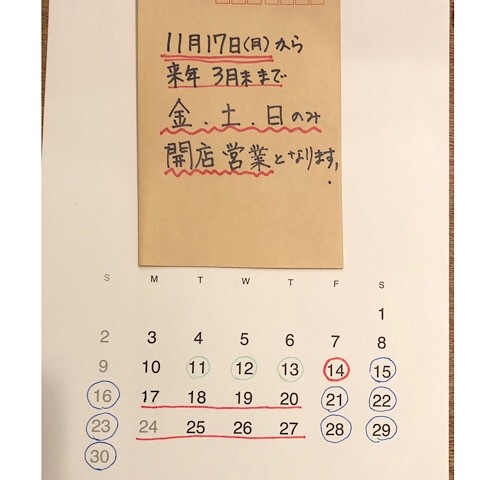 11月17日(月)から
来年 3月末まで
金.土.日のみ
開店営業となります.
S M T W T F S
1
2 3 4 5 6 7 8
9 10 11 12 13 14 15
16 17 18 19 20 21 22
23 24 25 26 27 28 29
30